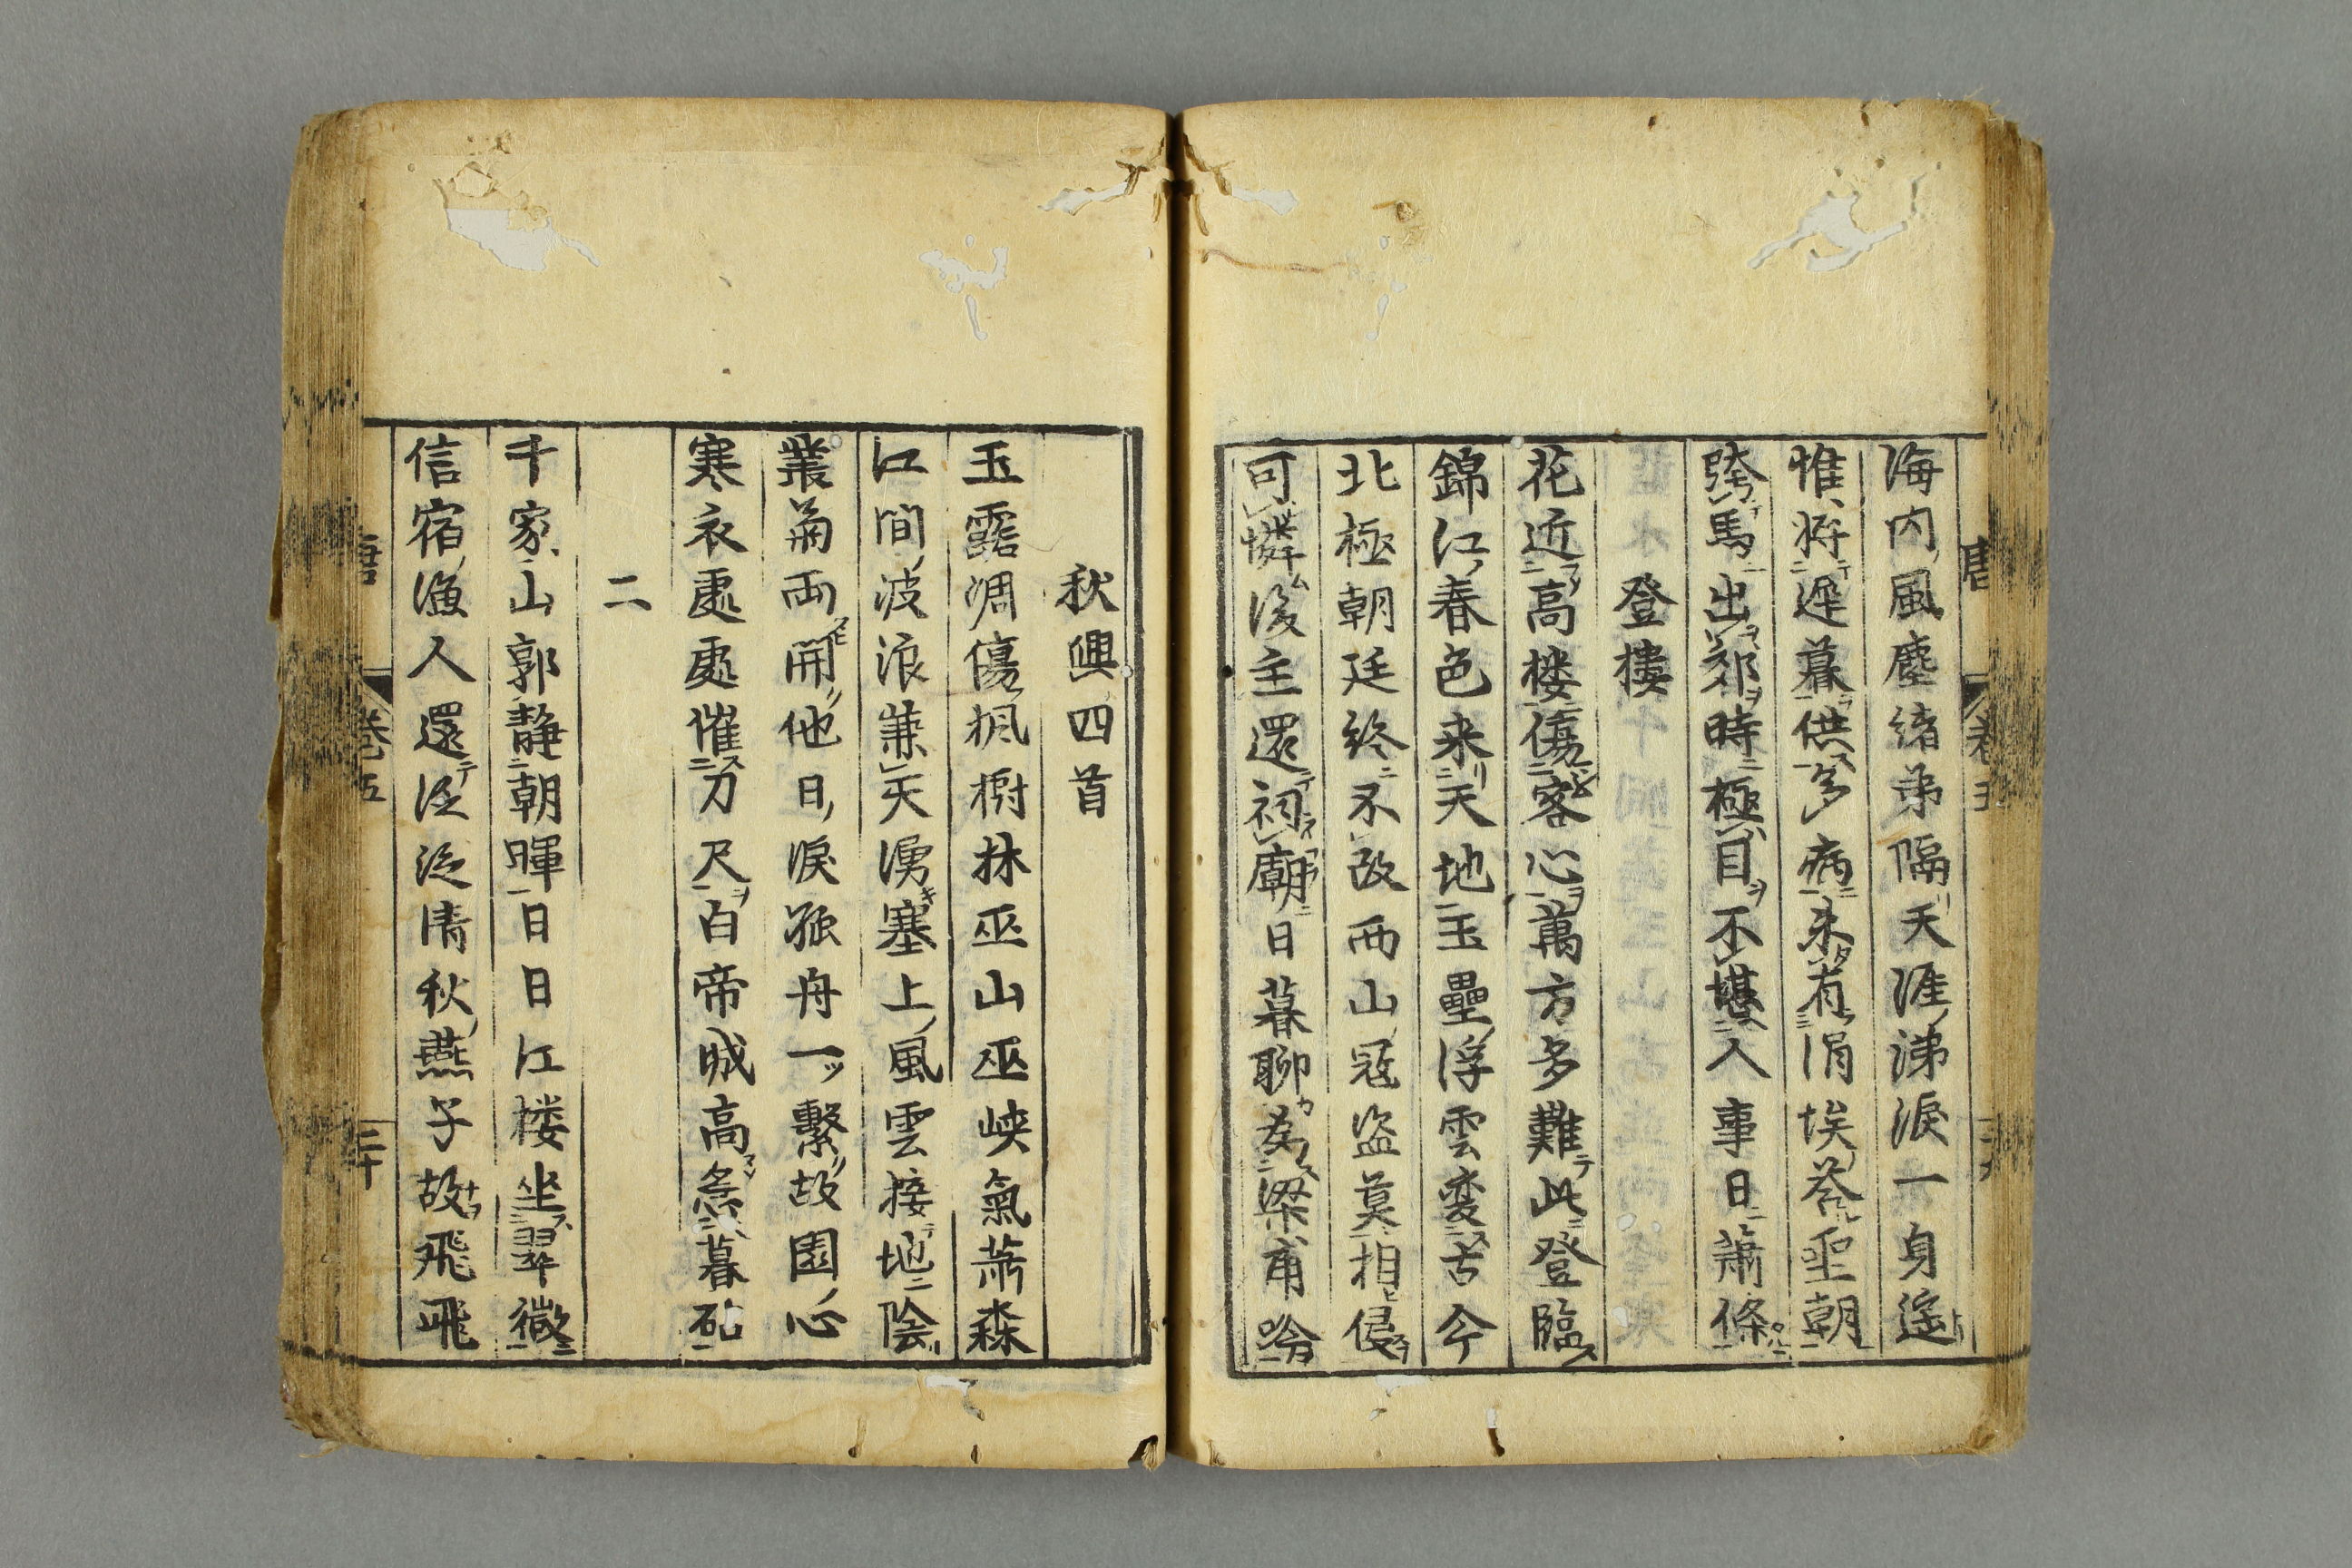 海内風塵諸弟隔天涯涕淚一身遥
惟将遲暮供多病未有涓埃荅聖朝
跨馬出郊時極目不堪人事日蕭條
登楼
花近高楼傷客心萬方多難此登臨
錦江春色来天地玉壘浮雲変古今
北極朝廷終不改西山冦盗莫相侵
可憐後主還祠廟日暮聊為梁甫吟
秋興四首
玉露凋傷楓樹林巫山巫峡氣萧森
江間波浪兼天湧塞上風雲接地陰
叢菊両開他日淚孤舟一繫故園心
寒衣處處催刀尺白帝城高急暮砧
二
千家山郭静朝暉日日江楼坐翠微
信宿漁人還泛泛清秋燕子故飛飛
卷五
二十